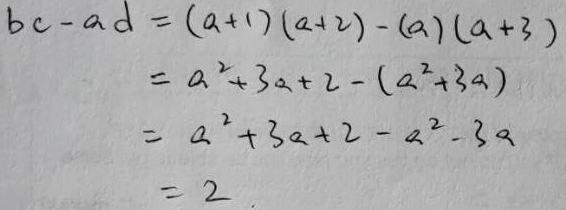 bc-ad = (a+1)(a+2)-(a)(a+3)
= a²+3a+2-(a²+3a)
= a²+3a+2-a²-3a
= 2.